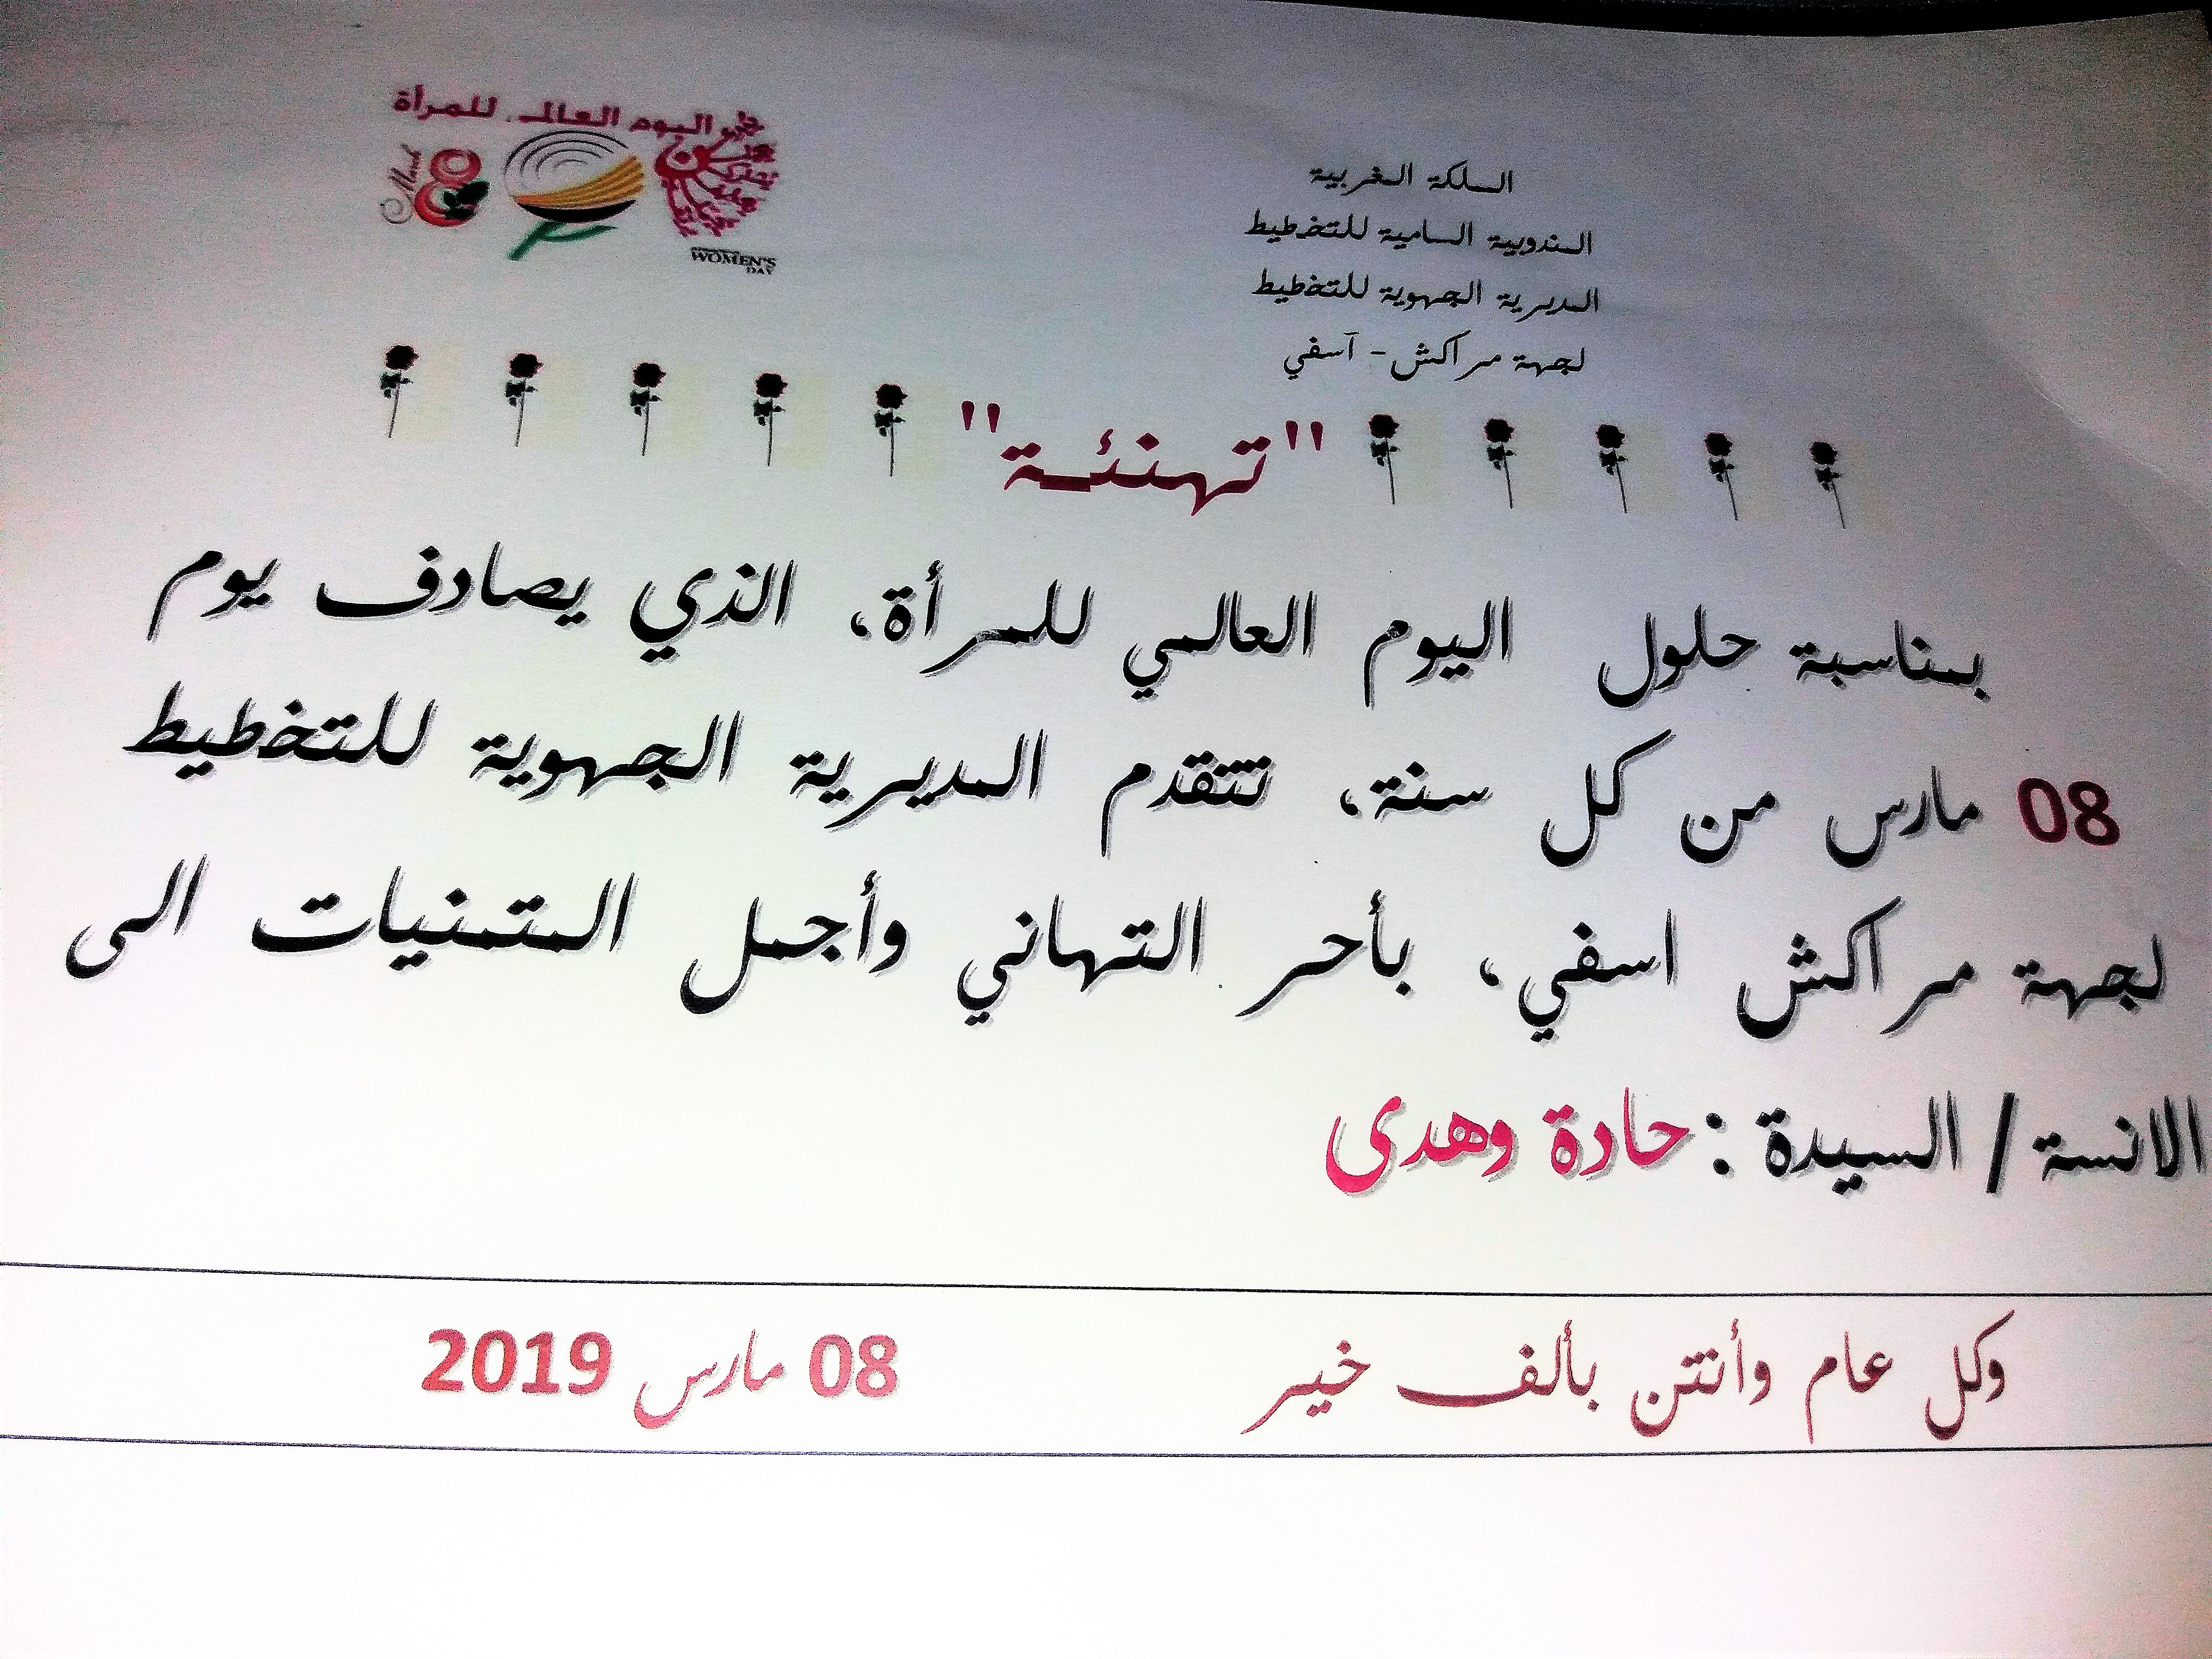 المملكة المغربية
المندوبية السامية للتخطيط
المديرية الجهوية للتخطيط
لجهة مراكش - آسفي
اليوم العالمي للمرأة
March 8
WOMEN'S
DAY
"تهنئة"
بمناسبة حلول اليوم العالمي للمرأة، الذي يصادف يوم
08 مارس من كل سنة، تتقدم المديرية الجهوية للتخطيط
لجهة مراكش اسفي، بأحر التهاني وأجمل المتمنيات الى
الانسة / السيدة : حادة وهدى
وكل عام وأنتن بألف خير 08 مارس 2019